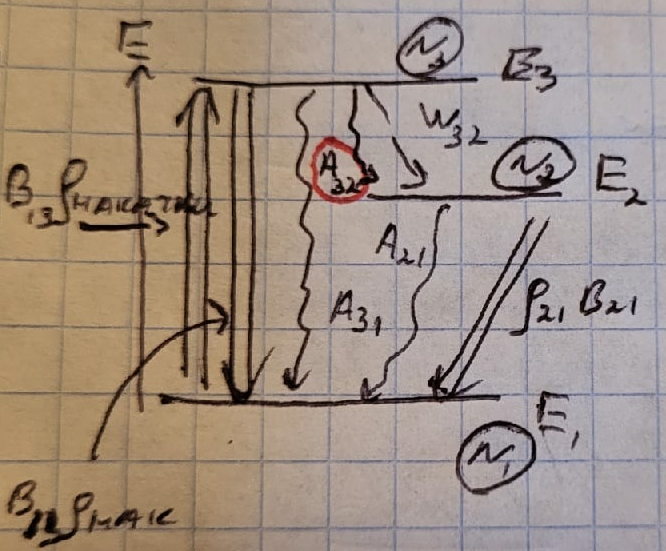 E
N₃
E₃
W₃₂
A₃₂
N₂
E₂
B₁₃ ρнакачки
A₂₁
A₃₁
ρ₂₁ B₂₁
E₁
N₁
ρнак